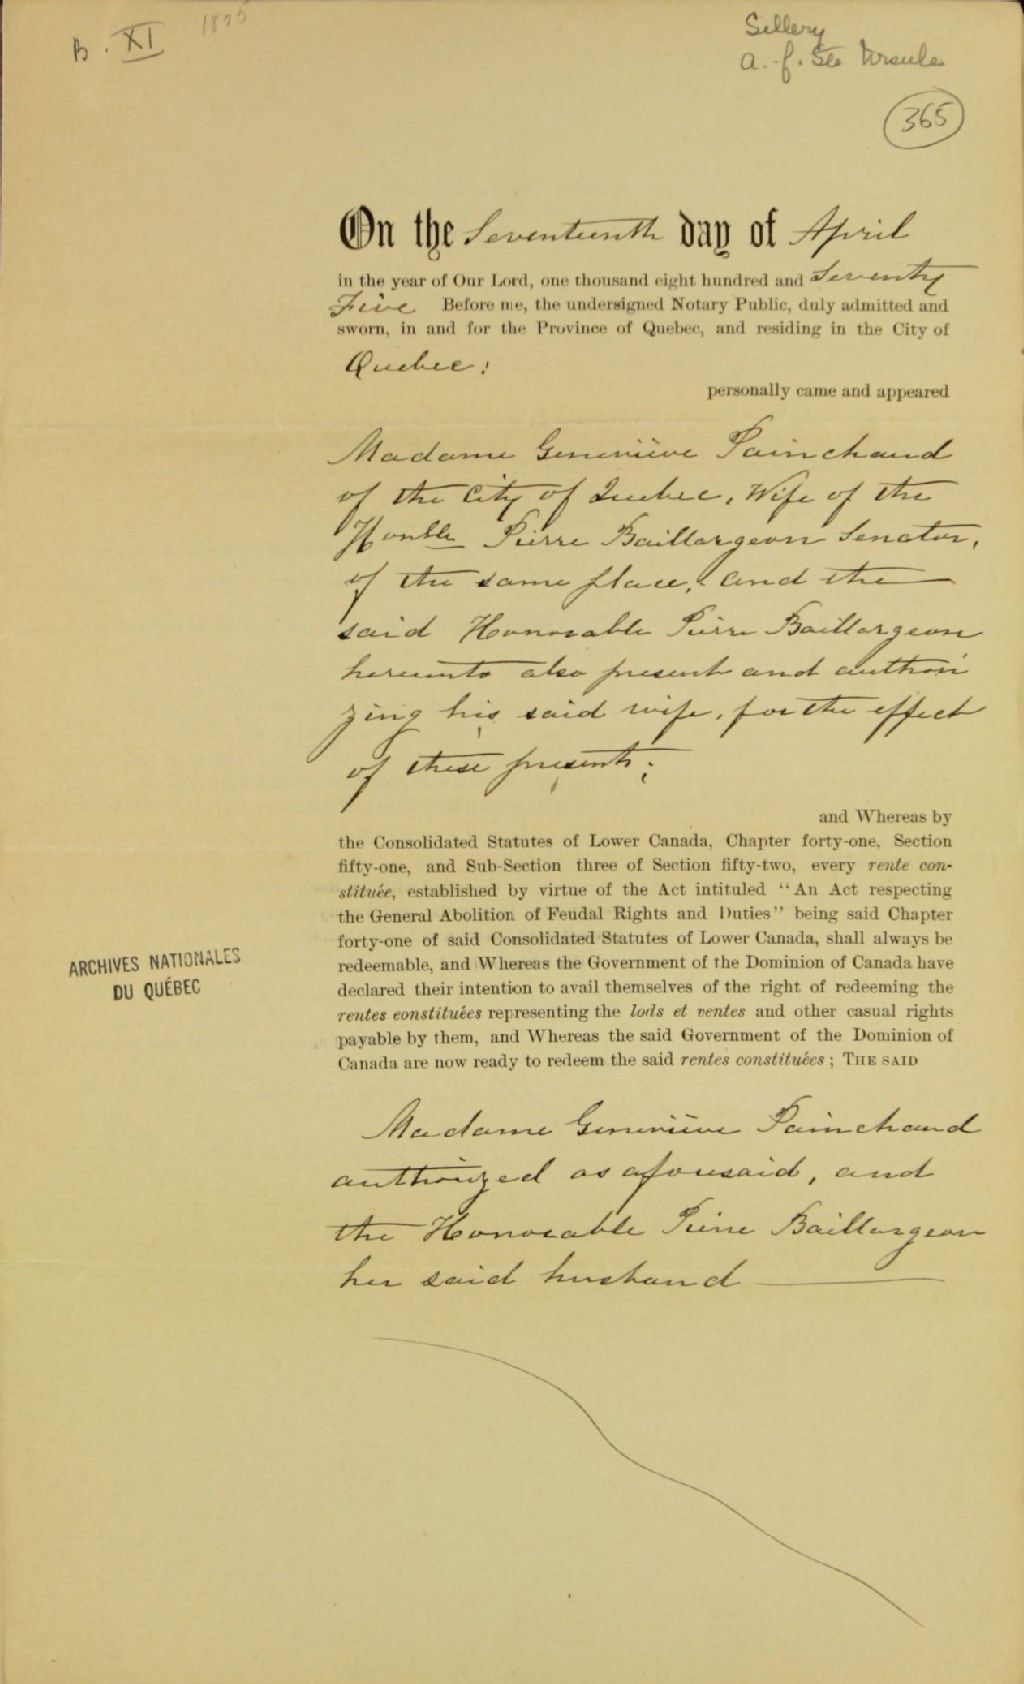 B. XI
1875
Sillery
a. f. Ste Ursule
365
On the Seventeenth day of April
in the year of Our Lord, one thousand eight hundred and Seventy
Five Before me, the undersigned Notary Public, duly admitted and
sworn, in and for the Province of Quebec, and residing in the City of
Quebec;
personally came and appeared
Madame Geneviève Painchaud
of the City of Quebec, Wife of the
Honble Pierre Baillargeon Senator,
of the same place, and the
said Honorable Pierre Baillargeon
hereunto also present and authori
zing his said wife, for the effect
of these presents;
and Whereas by
the Consolidated Statutes of Lower Canada, Chapter forty-one, Section
fifty-one, and Sub-Section three of Section fifty-two, every rente con-
stituée, established by virtue of the Act intituled "An Act respecting
the General Abolition of Feudal Rights and Duties" being said Chapter
forty-one of said Consolidated Statutes of Lower Canada, shall always be
redeemable, and Whereas the Government of the Dominion of Canada have
declared their intention to avail themselves of the right of redeeming the
rentes constituées representing the lods et ventes and other casual rights
payable by them, and Whereas the said Government of the Dominion of
Canada are now ready to redeem the said rentes constituées; THE SAID
ARCHIVES NATIONALES
DU QUÉBEC
Madame Geneviève Painchaud
authorized as aforesaid, and
the Honorable Pierre Baillargeon
her said husband